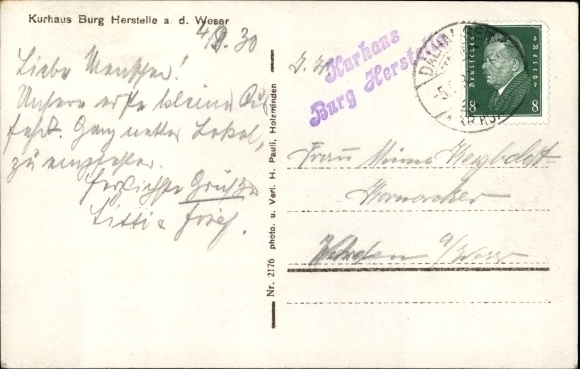 Kurhaus Burg Herstelle a. d. Weser
4/9.30
Liebe Menschen!
Unsere erste kleine Aus
fahrt. Ganz nettes Lokal,
zu empfehlen.
Herzlichste Grüße
Josef.
Nr. 2176 photo. u. Verl. H. Pauli, Holzminden
Kurhaus
Burg Herstelle
Deutsches Reich
8 8
Frau Minna
a/Weser